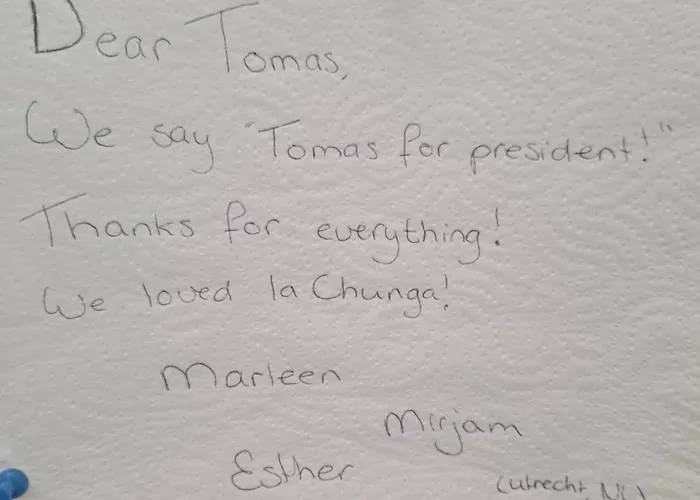 Dear Tomas,
We say "Tomas for president!"
Thanks for everything!
We loved la Chunga!
Marleen
Mirjam
Esther
(Utrecht, NL)